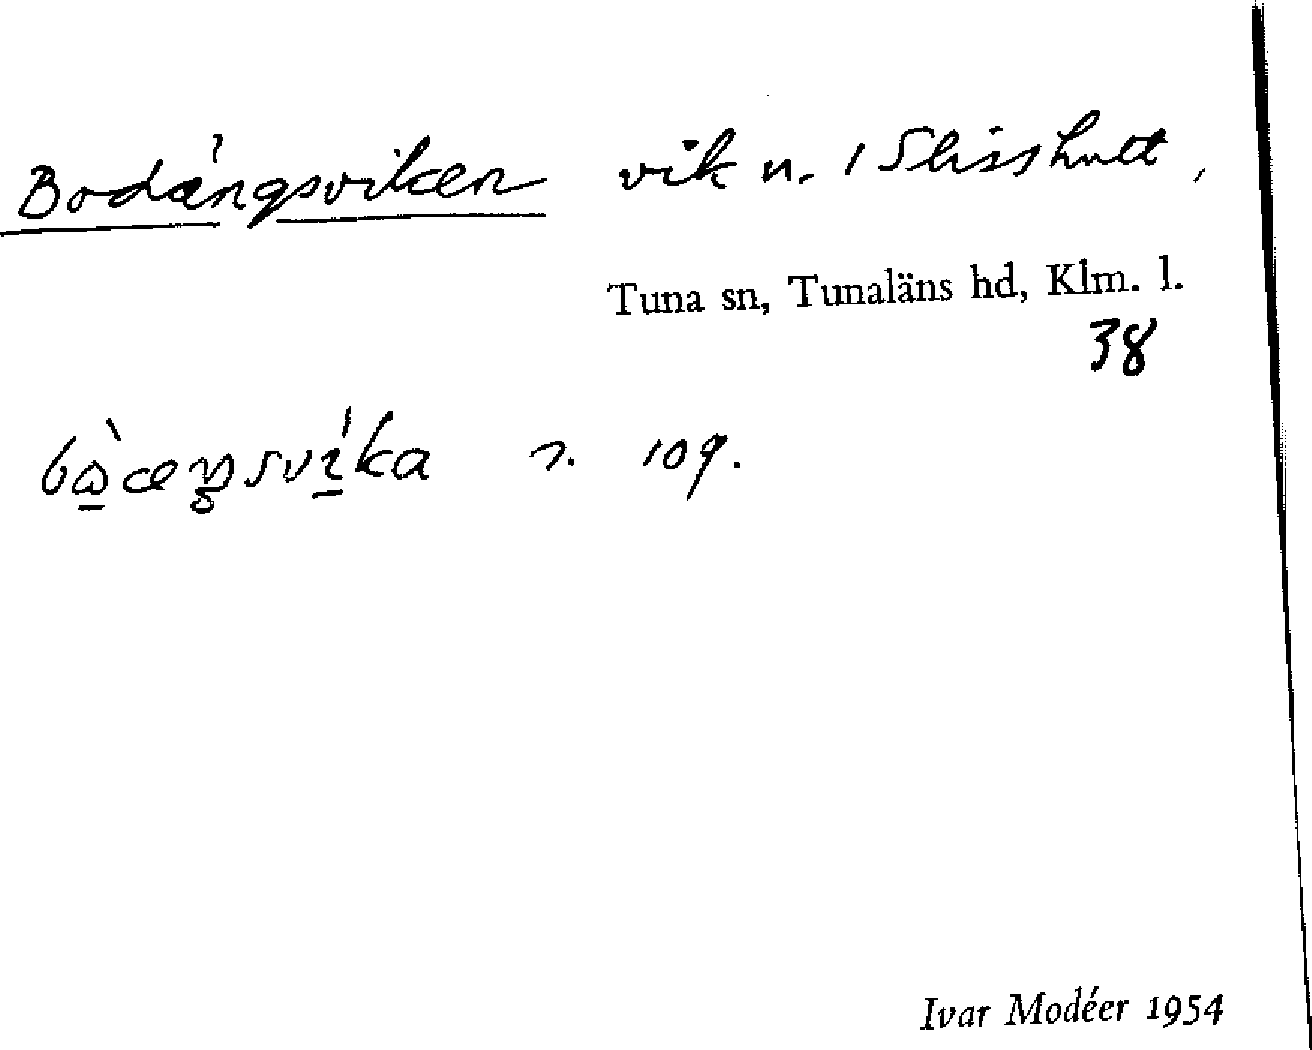 Bodängsviken vik n. i Slisshult,
Tuna sn, Tunaläns hd, Klm. l.
38
n. 109.
Ivar Modéer 1954